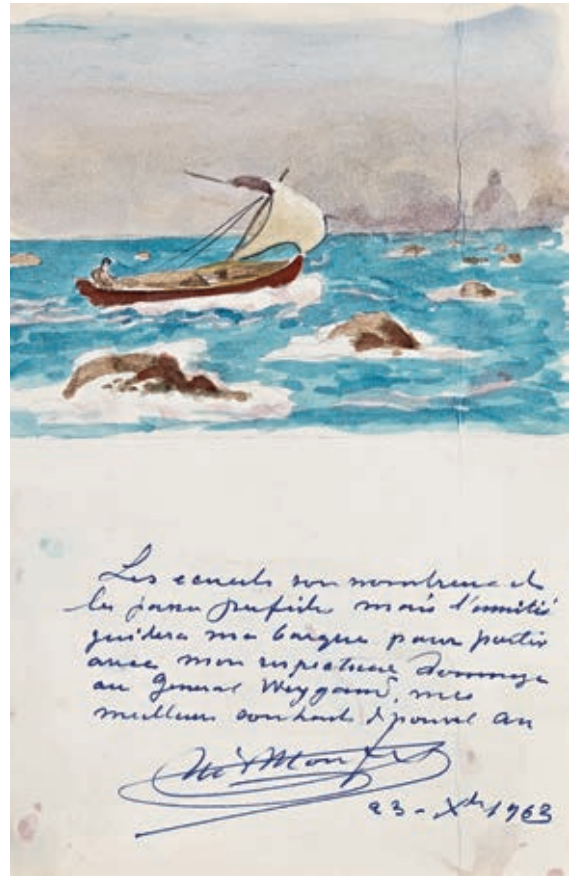 Les ecueils son nombreux et
les passes perfides mais l'amitié
guidera ma barque pour porter
avec mon respectueux hommage
au General Weygand, mes
meilleurs souhaits d nouvel an
23 - Xbre 1963